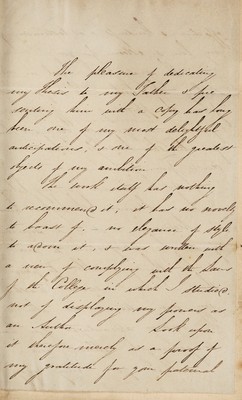 The pleasure of dedicating
my Thesis to my Father & pre
senting him with a copy has long
been one of my most delightful
anticipations, & one of the greatest
objects of my ambition.
The work itself has nothing
to recommend it, it has no novelty
to boast of, no elegance of style
to adorn it, & was written with
a view of complying with the Laws
of the College in which I studied,
not of displaying my powers as
an Author. Look upon
it therefore merely as a proof of
my gratitude for your paternal